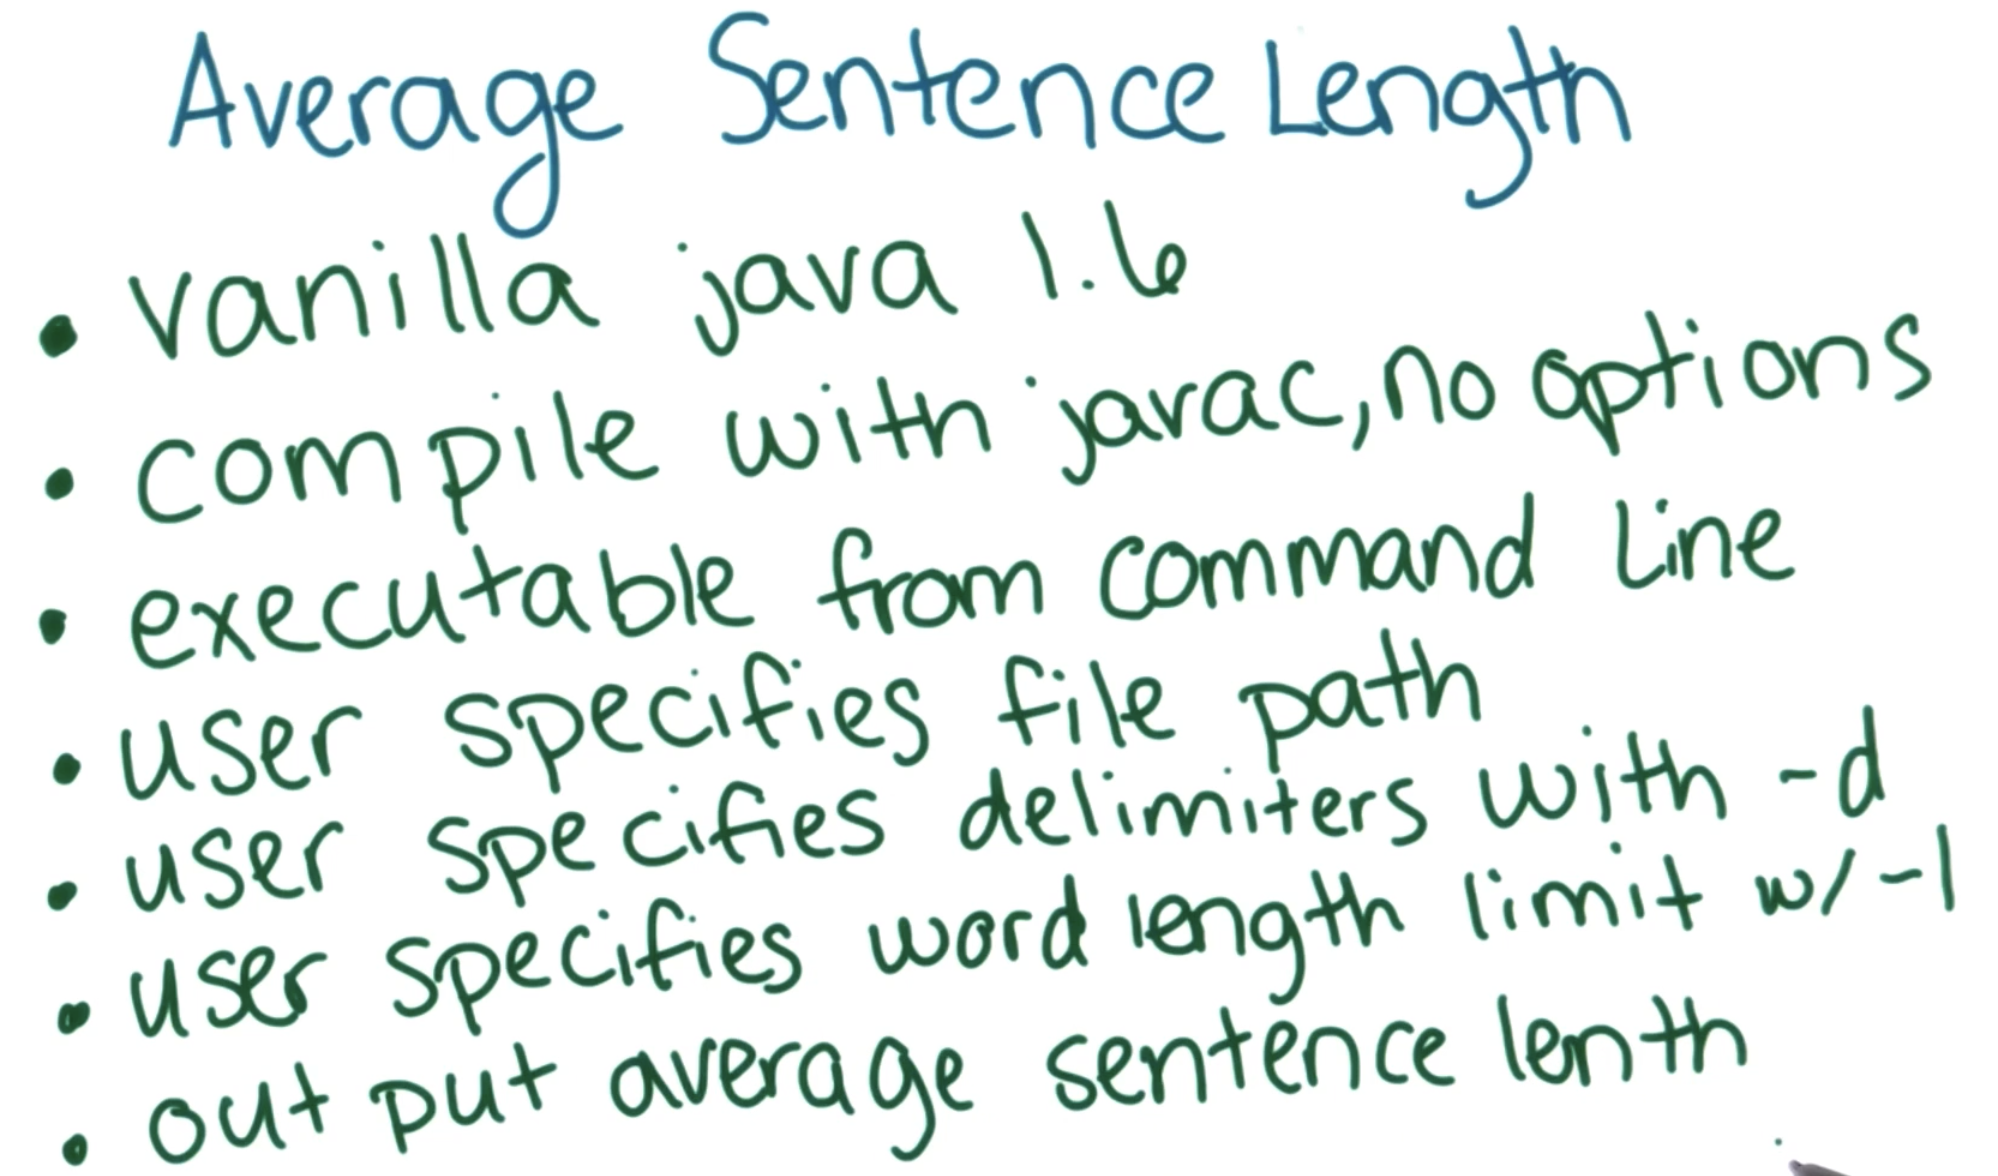 Average Sentence Length
• vanilla java 1.6
• compile with javac, no options
• executable from command Line
• user specifies file path
• user specifies delimiters with -d
• user specifies word length limit w/ -l
• out put average sentence lenth